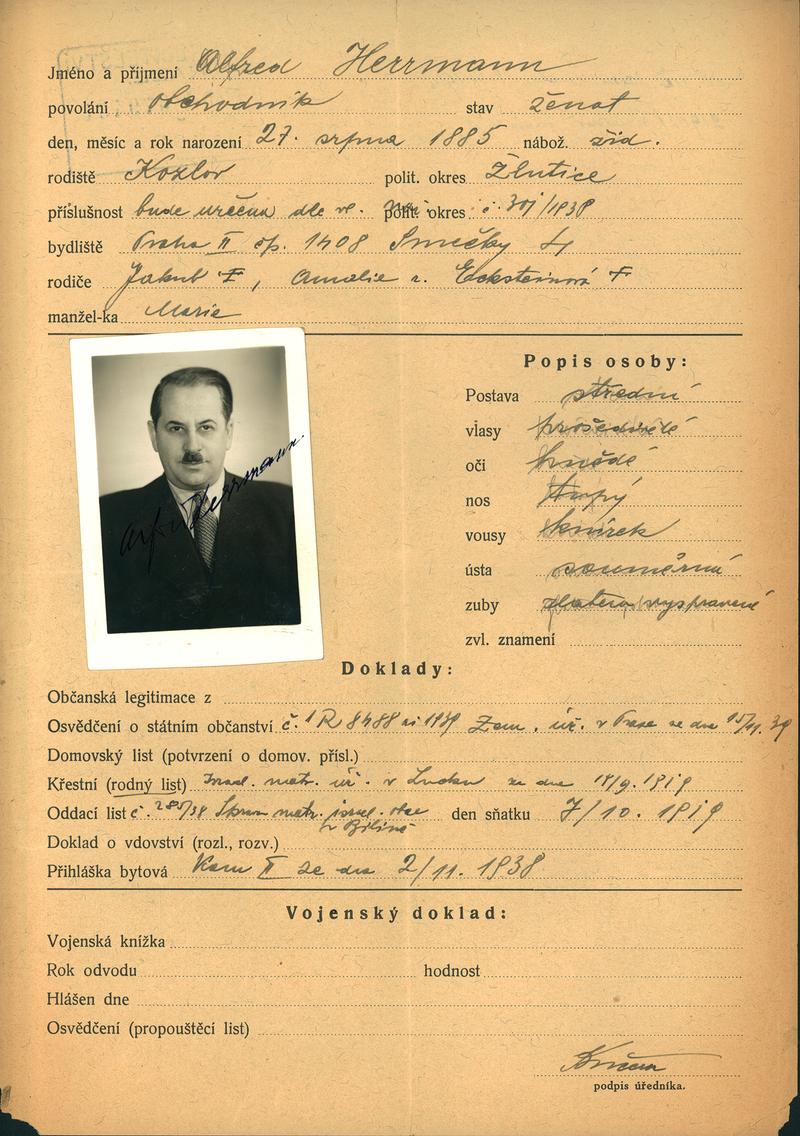 Jméno a příjmení Alfred Herrmann
povolání obchodník stav ženat
den, měsíc a rok narození 27. srpna 1885 nábož. žid.
rodiště Kozlov polit. okres Žlutice
příslušnost bude určena dle vl. polit. okres č. 301/1938
bydliště Praha II čp. 1408 Smečky 4
rodiče Jakub †, Amalie r. Ecksteinová †
manžel-ka Marie
Alfred Herrmann
Popis osoby:
Postava střední
vlasy prošedivělé
oči hnědé
nos tupý
vousy knírek
ústa souměrná
zuby zlatem vyspravené
zvl. znamení
Doklady:
Občanská legitimace z
Osvědčení o státním občanství č. 1 R 8488 ai 1939 Zem. úř. v Praze ze dne 15/11. 39
Domovský list (potvrzení o domov. přísl.)
Křestní (rodný list) Israel. matr. úř. v ze dne 18/9. 1919
Oddací list č. 285/38 Správa matr. israel. obce v Bílině den sňatku 7/10. 1919
Doklad o vdovství (rozl., rozv.)
Přihláška bytová Kom II ze dne 2/11. 1938
Vojenský doklad:
Vojenská knížka
Rok odvodu hodnost
Hlášen dne
Osvědčení (propouštěcí list)
podpis úředníka.